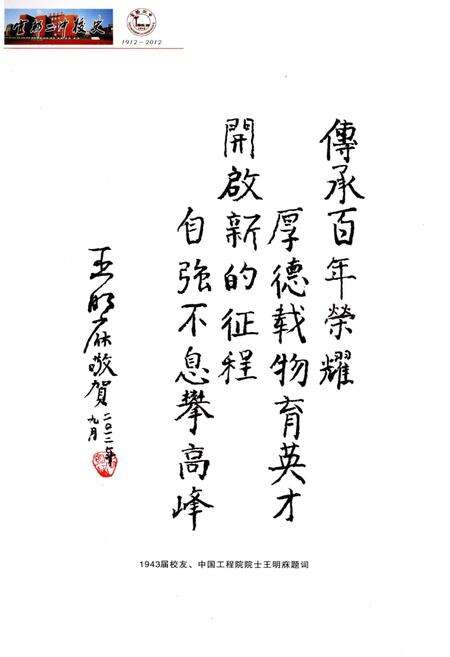 二中校史
1912-2012
傳承百年榮耀
厚德载物育英才
開啟新的征程
自強不息攀高峰
王明庥敬賀
二〇一二年
九月
1943届校友、中国工程院院士王明庥题词